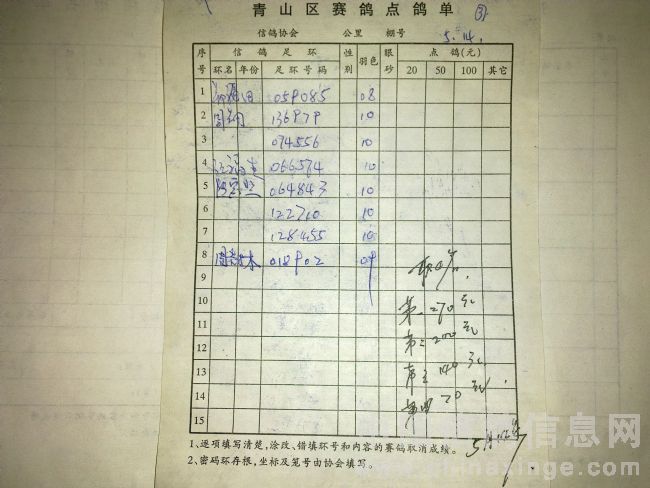 青山区赛鸽点鸽单 ③
信鸽协会 公里 棚号 5.14.
序号 信鸽足环 性别 羽色 眼砂 点鸽(元)
环名 年份 足环号码 20 50 100 其它
1 059085 08
2 136979 10
3 074556 10
4 066574 10
5 064843 10
6 122710 10
7 128455 10
8 018902 09
9
10 第一270元
11 第二200元
12
13 第三140元
14 第四70
15
1、逐项填写清楚,涂改、错填环号和内容的赛鸽取消成绩。
2、密码环存根,坐标及笼号由协会填写。
信息网
www.chinaxinge.com